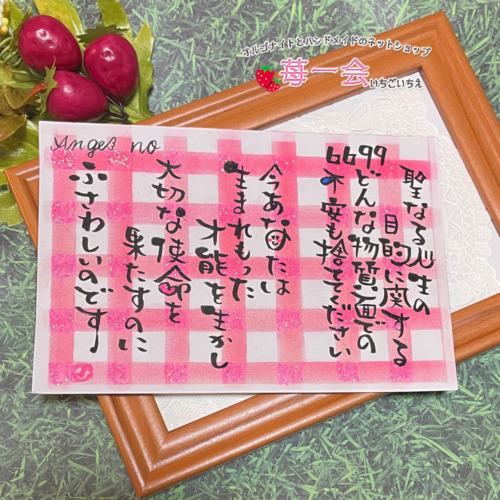 オルゴナイトとハンドメイドのネットショップ
苺一会
いちごいちえ
Angel no
6699
聖なる人生の
目的に関する
どんな物質面での
不安も捨ててください
今あなたは
生まれもった
才能を生かし
大切な使命を
果たすのに
ふさわしいのです